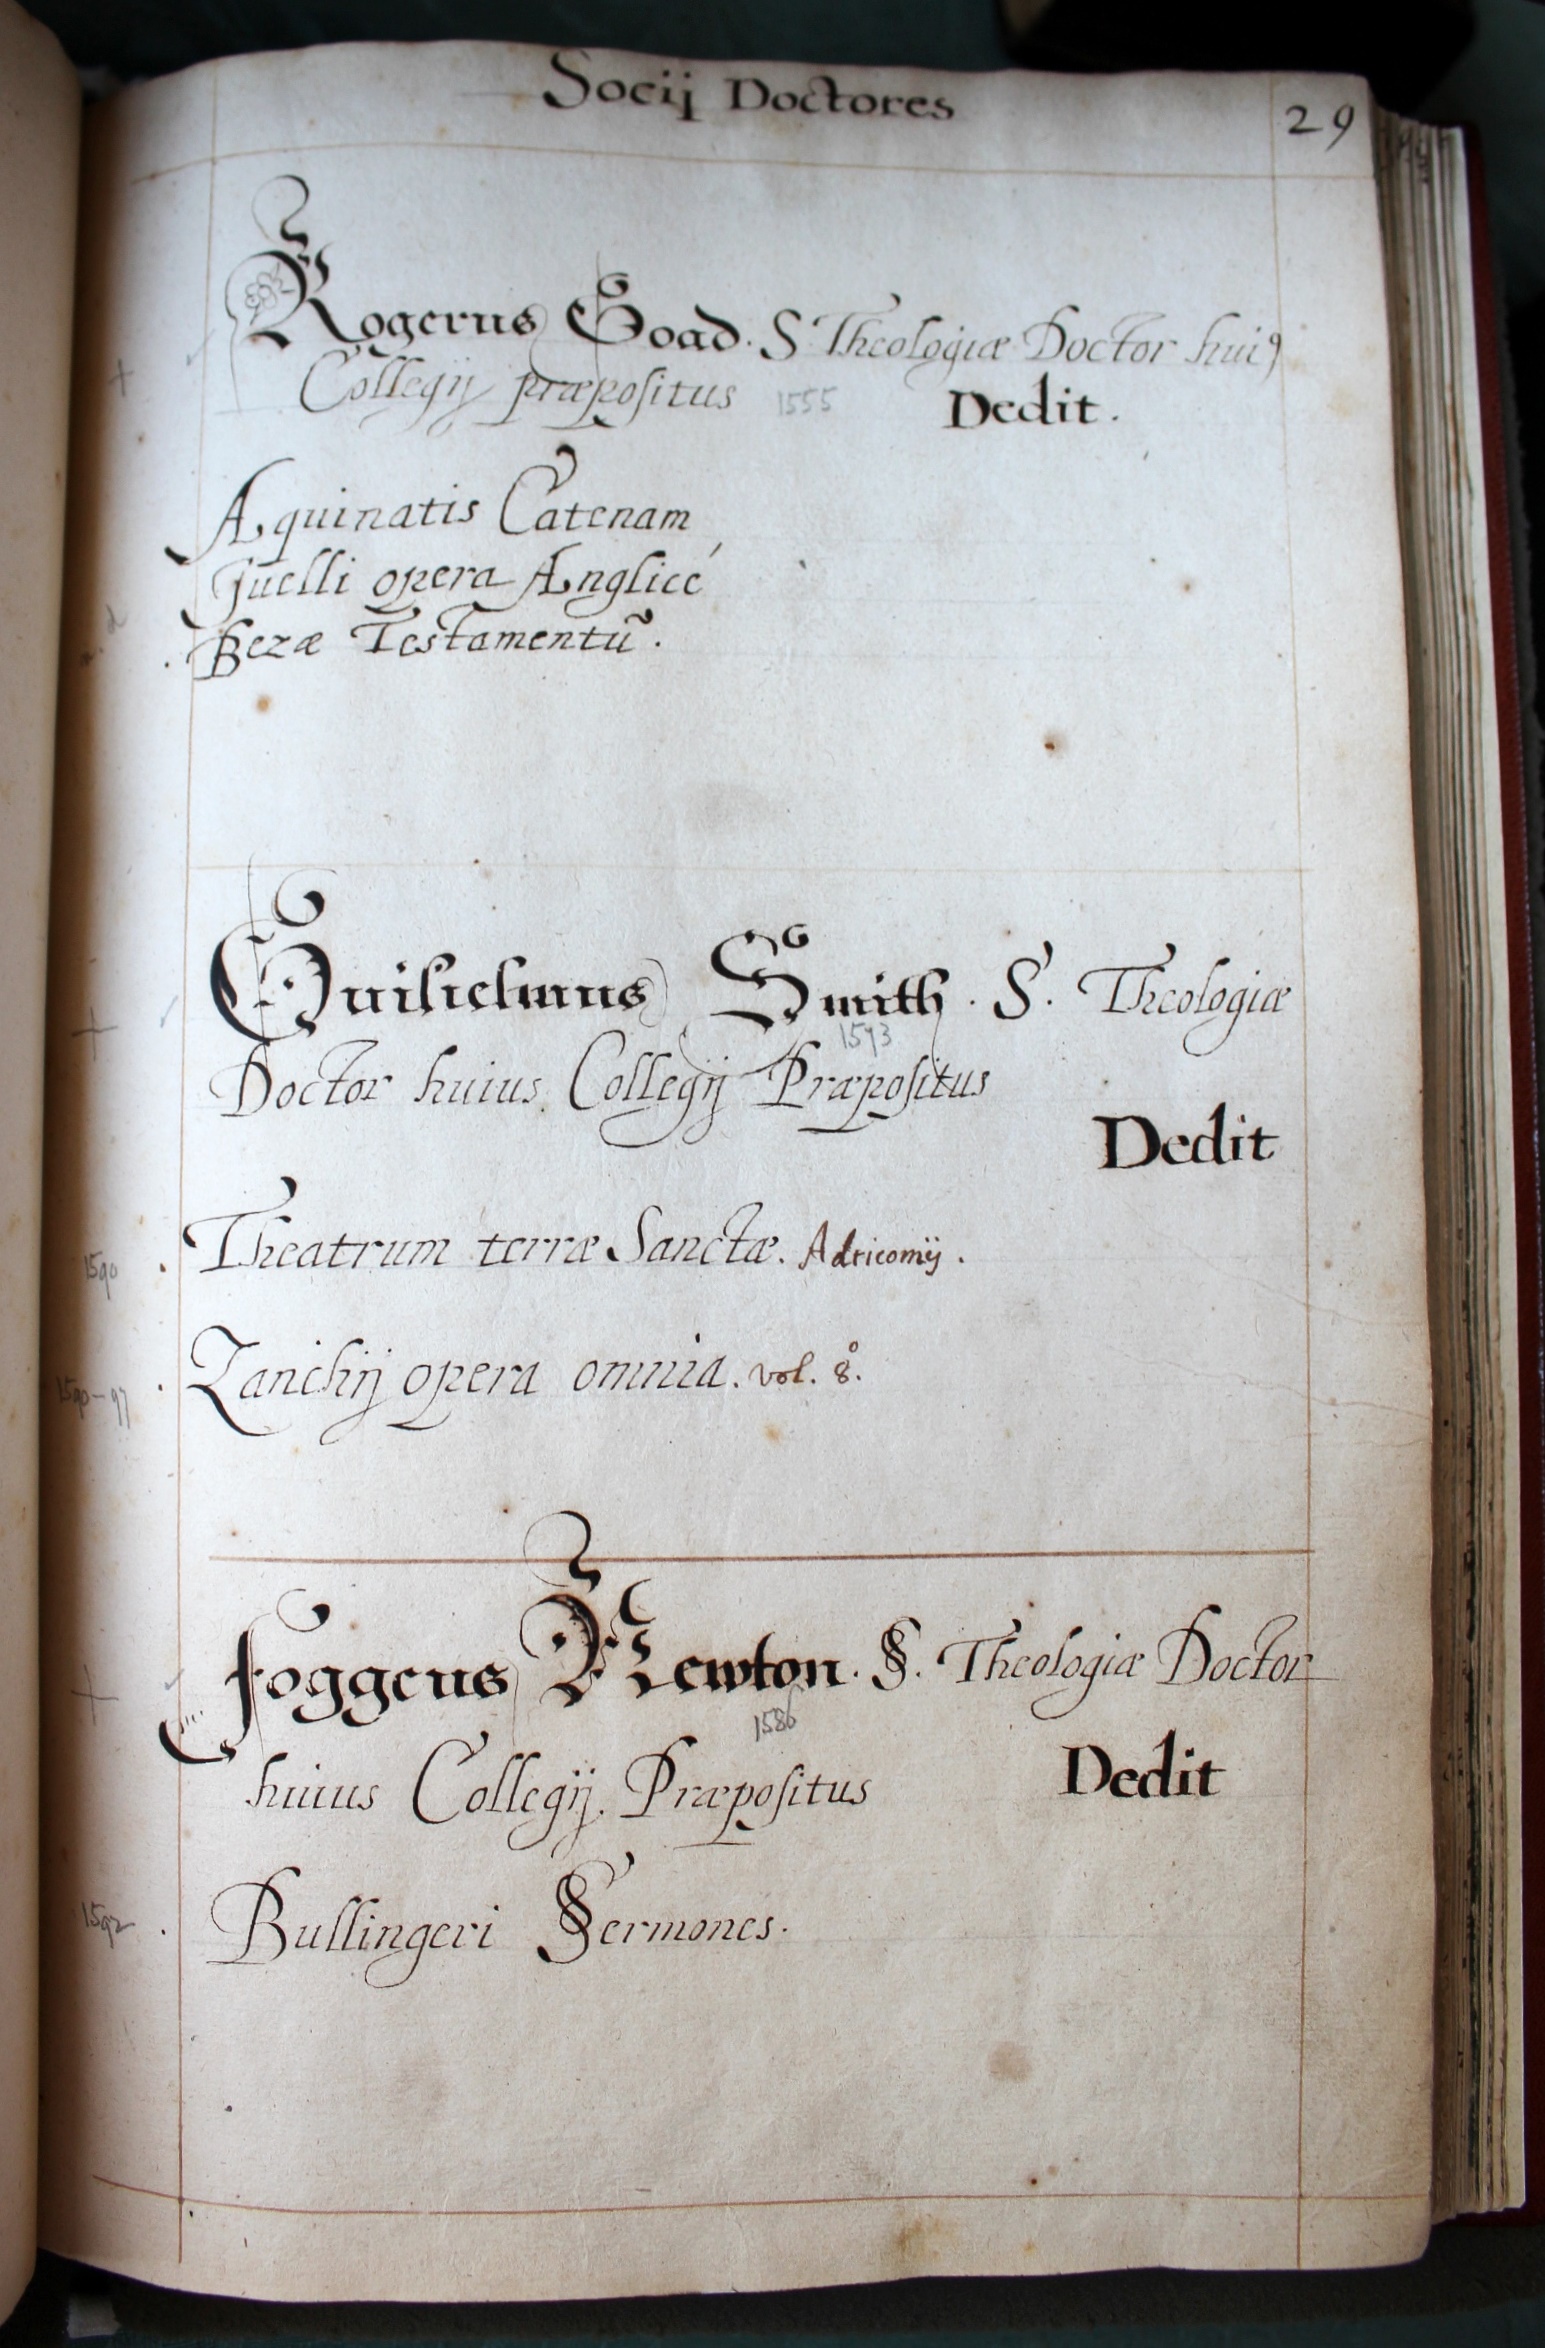 Socij Doctores
29
Rogerus Goad. S Theologiæ Doctor huiꝰ
Collegij præpositus 1555 Dedit.
Aquinatis Catenam
Juelli opera Anglicé
Bezæ Testamentũ.
Guilielmus Smith. S. Theologiæ
1573
Doctor huius Collegij Præpositus
Dedit
1590 Theatrum terræ Sanctæ. Adricomij.
1590-97 Zanchij opera omnia. vol. 8.
foggeus Newton. S. Theologiæ Doctor
1586
huius Collegij Præpositus Dedit
1592 Bullingeri Sermones.